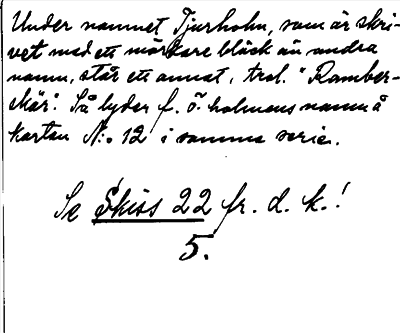 Under namnet Tjurholm, som är skri-
vet med ett mörkare bläck än andra
namn, står ett annat, trol. "Ramber-
skär". Så lyder f. ö. holmens namn å
kartan N:o 12 i samma serie.
Se Skiss 22 fr. d. k.!
5.